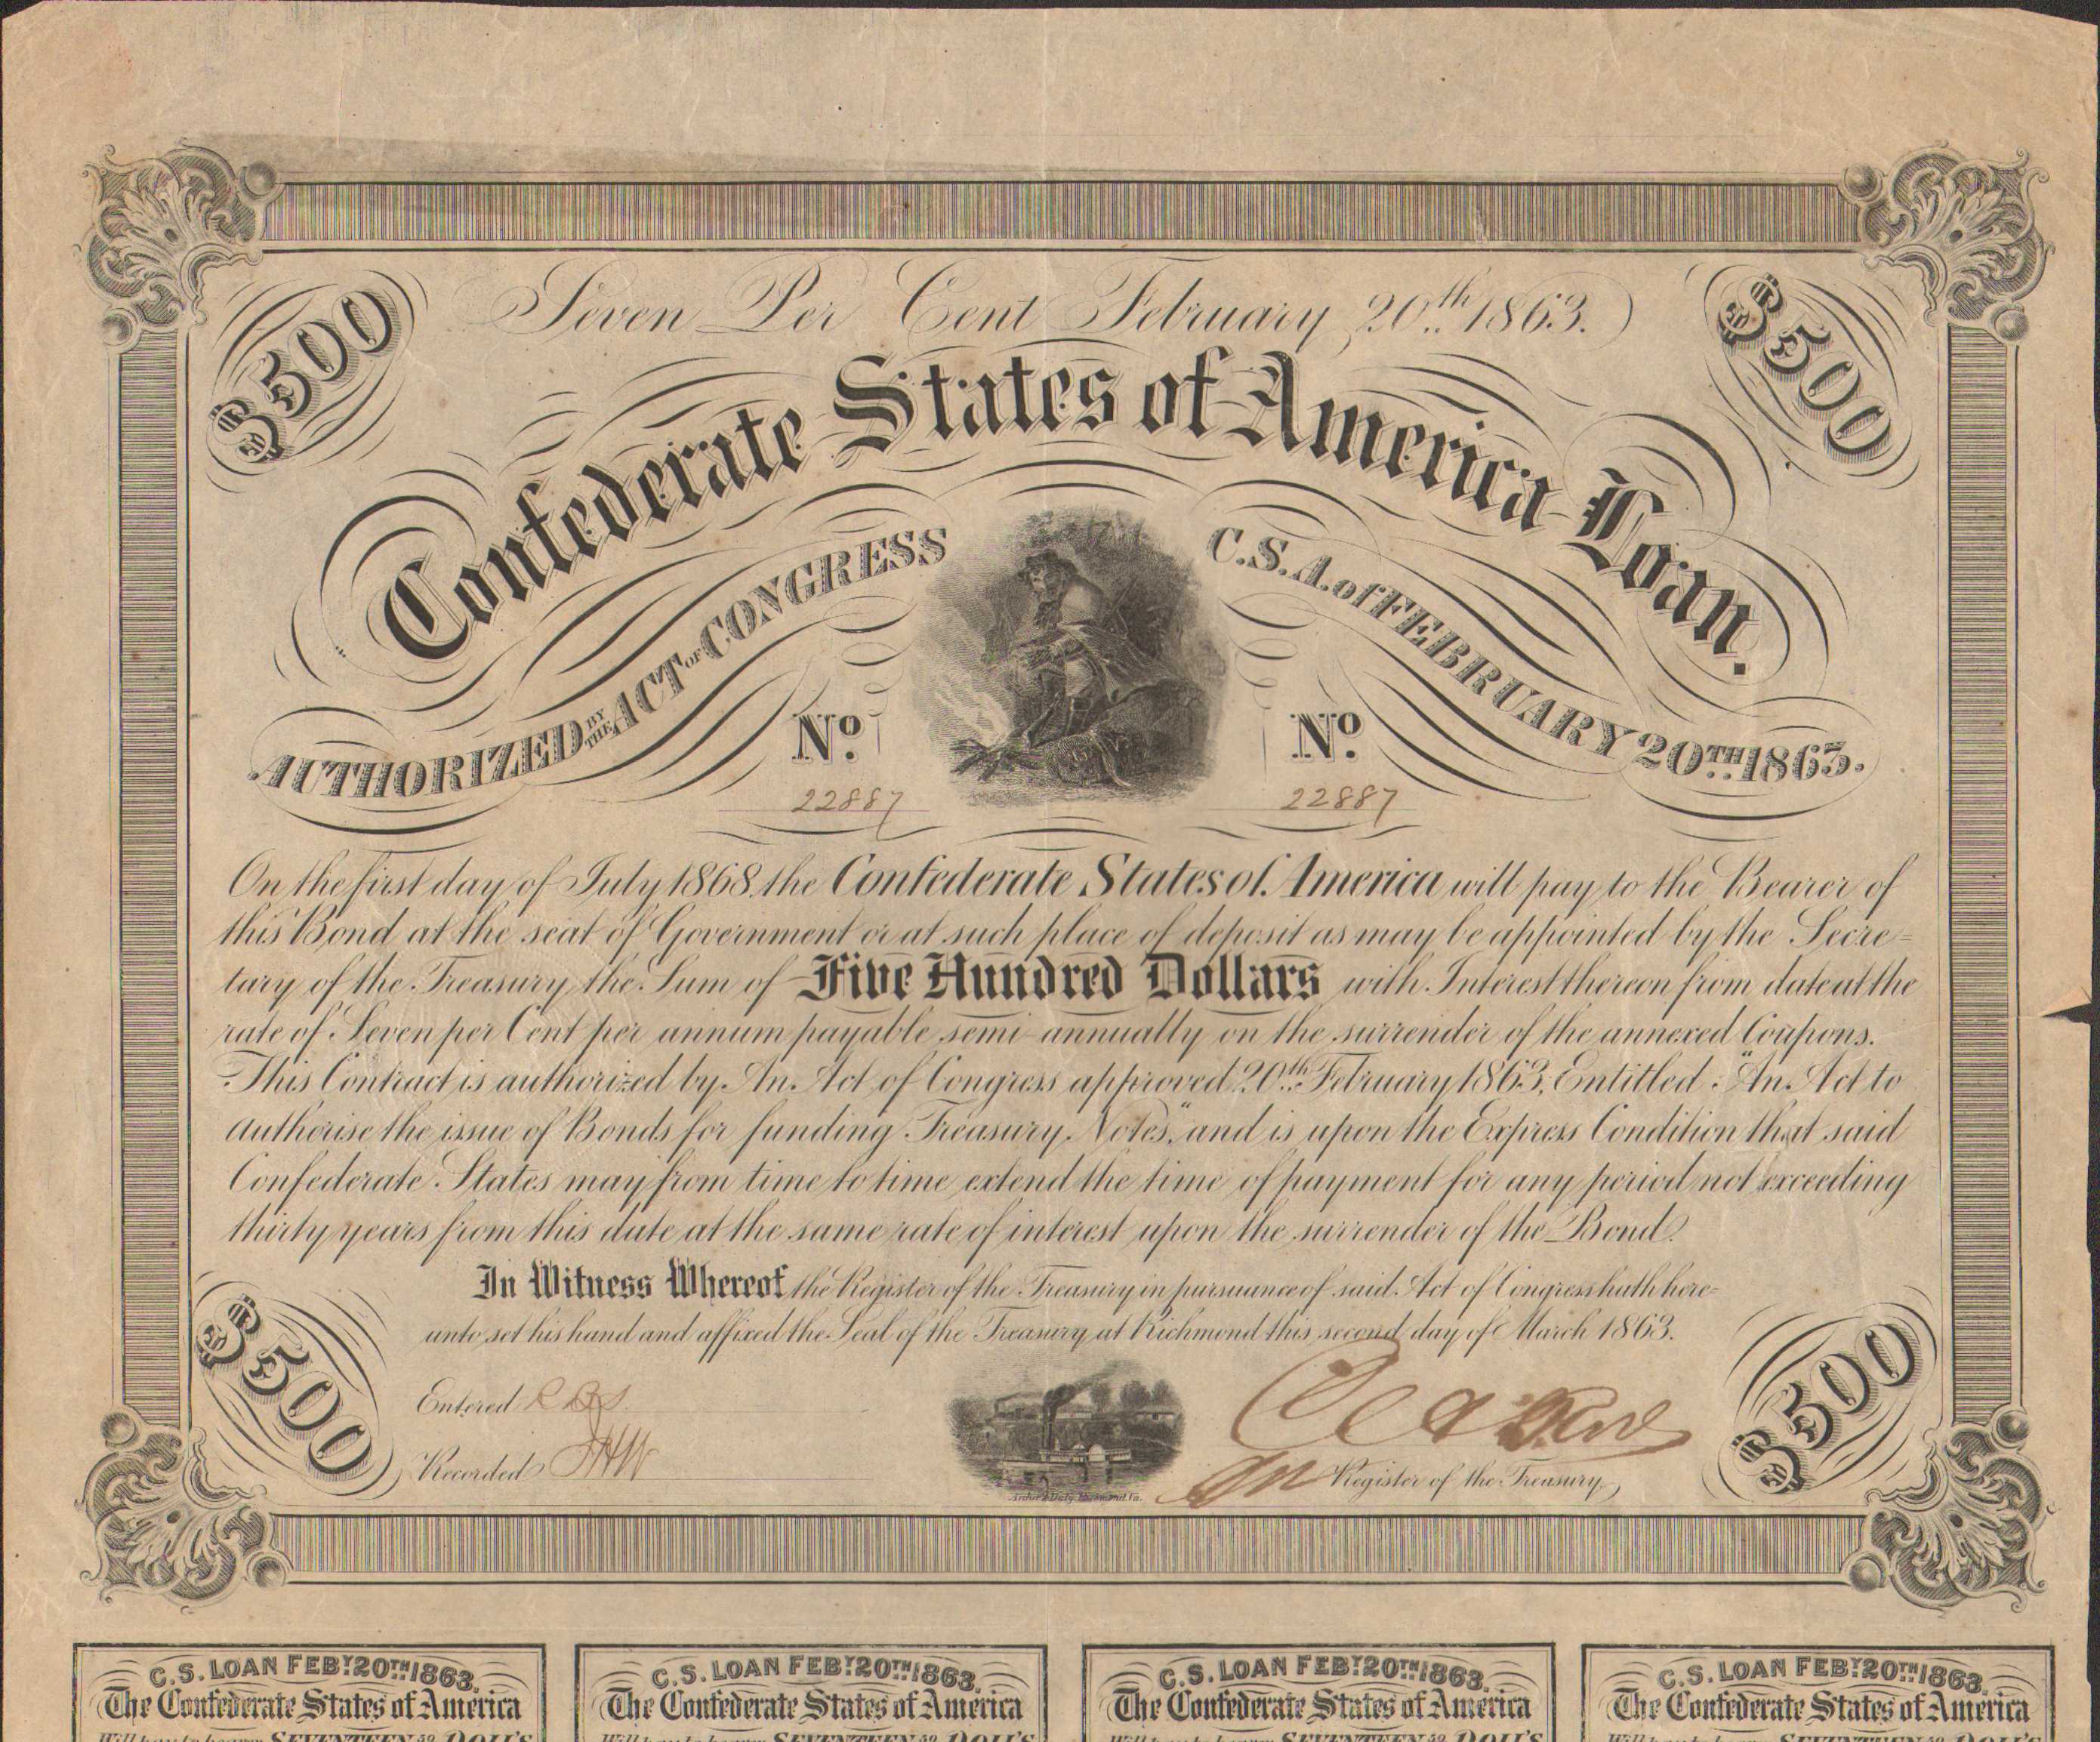 Seven Per Cent February 20th 1863.
$500
$500
Confederate States of America Loan.
AUTHORIZED BY THE ACT OF CONGRESS C.S.A. of FEBRUARY 20TH 1863.
No. No.
22887 22887
On the first day of July 1868, the Confederate States of America will pay to the Bearer of
this Bond at the seat of Government or at such place of deposit as may be appointed by the Secre=
tary of the Treasury, the Sum of Five Hundred Dollars with Interest thereon from date at the
rate of Seven per Cent per annum payable semi-annually on the surrender of the annexed Coupons.
This Contract is authorized by An Act of Congress approved 20th February 1863, Entitled: "An Act to
authorise the issue of Bonds for funding Treasury Notes," and is upon the Express Condition that said
Confederate States may from time to time extend the time of payment for any period not exceeding
thirty years from this date at the same rate of interest upon the surrender of the Bond.
In Witness Whereof, the Register of the Treasury in pursuance of said Act of Congress hath here-
unto set his hand and affixed the Seal of the Treasury at Richmond this second day of March 1863.
$500
$500
Entered
Recorded
Register of the Treasury
Richmond Va.
C.S. LOAN FEBY 20TH 1863.
The Confederate States of America
Will pay to bearer SEVENTEEN 50 DOLL'S
C.S. LOAN FEBY 20TH 1863.
The Confederate States of America
Will pay to bearer SEVENTEEN 50 DOLL'S
C.S. LOAN FEBY 20TH 1863.
The Confederate States of America
Will pay to bearer SEVENTEEN 50 DOLL'S
C.S. LOAN FEBY 20TH 1863.
The Confederate States of America
Will pay to bearer SEVENTEEN 50 DOLL'S